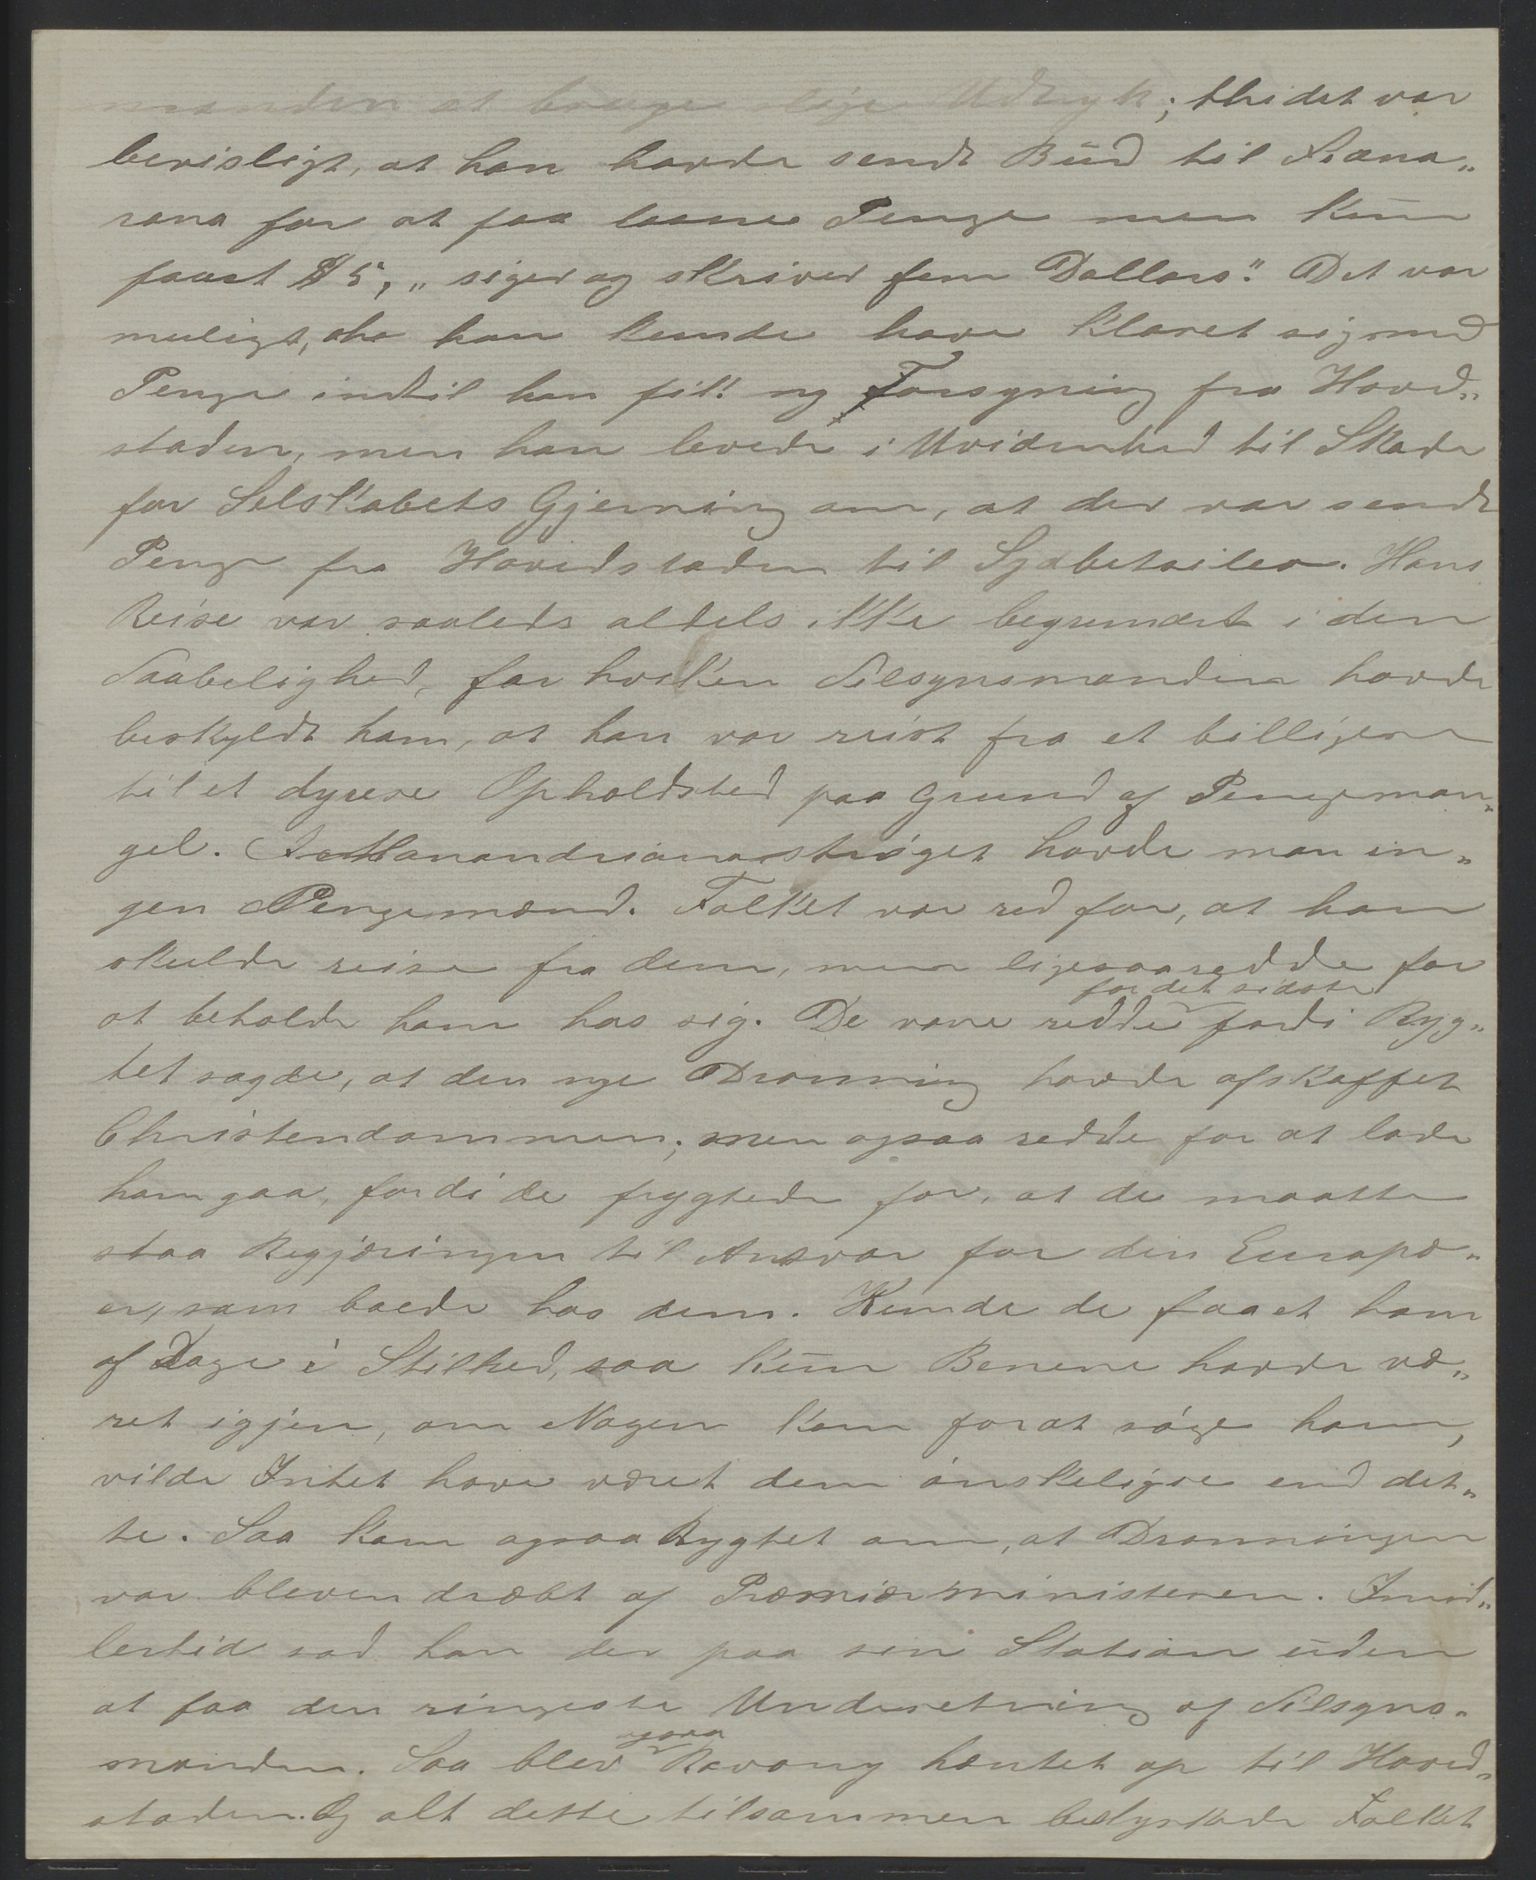 manden at bruge slige Udtryk; thi det var
bevisligt, at han havde sendt Bud til Fiana„
rana for at faa laane Penge men kun
faaet $ 5, „siger og skriver fem Dollars“. Det var
muligt, at han kunde have klaret sig med
Penge indtil han fik ny Forsyning fra Hoved„
staden, men han levede i Uvidenhed til Skade
for Selskabets Gjerning om, at der var sendt
Penge fra Hovedstaden til Sydbetsileo. Hans
Reise var saaledes aldeles ikke begrundet i den
Taabelighed, for hvilken Tilsynsmanden havde
beskyldt ham, at han var reist fra et billigere
til et dyrere Opholdsted paa Grund af Pengeman„
gel. I Manandrianastrøget havde man in„
gen Pengemænd. Folket var red for, at han
skulde reise fra dem, men ligesaa redde for
at beholde ham hos sig. De vare redde for det sidste fordi Ryg„
tet sagde, at den nye Dronning havde afskaffet
Christendommen; men ogsaa redde for at lade
ham gaa, fordi de frygtede for, at de maatte
staa Regjeringen til Ansvar for den Europæ„
er, som boede hos dem. Kunde de faaet ham
af Dage i Stilhed, saa kun Benene havde væ„
ret igjen, om Nogen kom for at søge ham,
vilde Intet have været dem ønskeligere end det„
te. Saa kom ogsaa Rygtet om, at Dronningen
var bleven dræbt af Præmierministeren. Imid„
lertid sad han der paa sin Station uden
at faa den ringeste Underretning af Tilsyns„
manden. Saa blev ogsaa Ravony hentet op til Hoved„
staden. Og alt dette tilsammen bestyrkede Folket